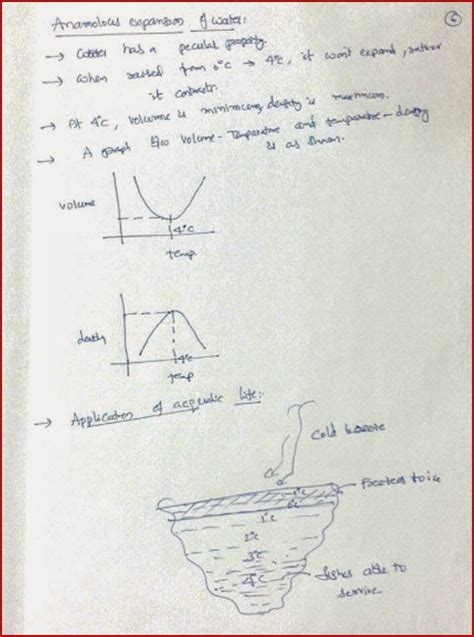 6
Anamolous expansion of water:
→ Water has a peculiar property.
→ When raised from 0°C → 4°C, it won't expand, rather
it contracts.
→ At 4°C, volume is minimum, density is maximum.
→ A graph b/w volume - Temperature and temperature - density
is as shown.
volume
4°C
temp
density
4°C
temp
→ Application of acquatic life:-
Cold breeze
Freezes to ice
0°C
1°C
2°C
3°C
4°C
fishes able to
survive